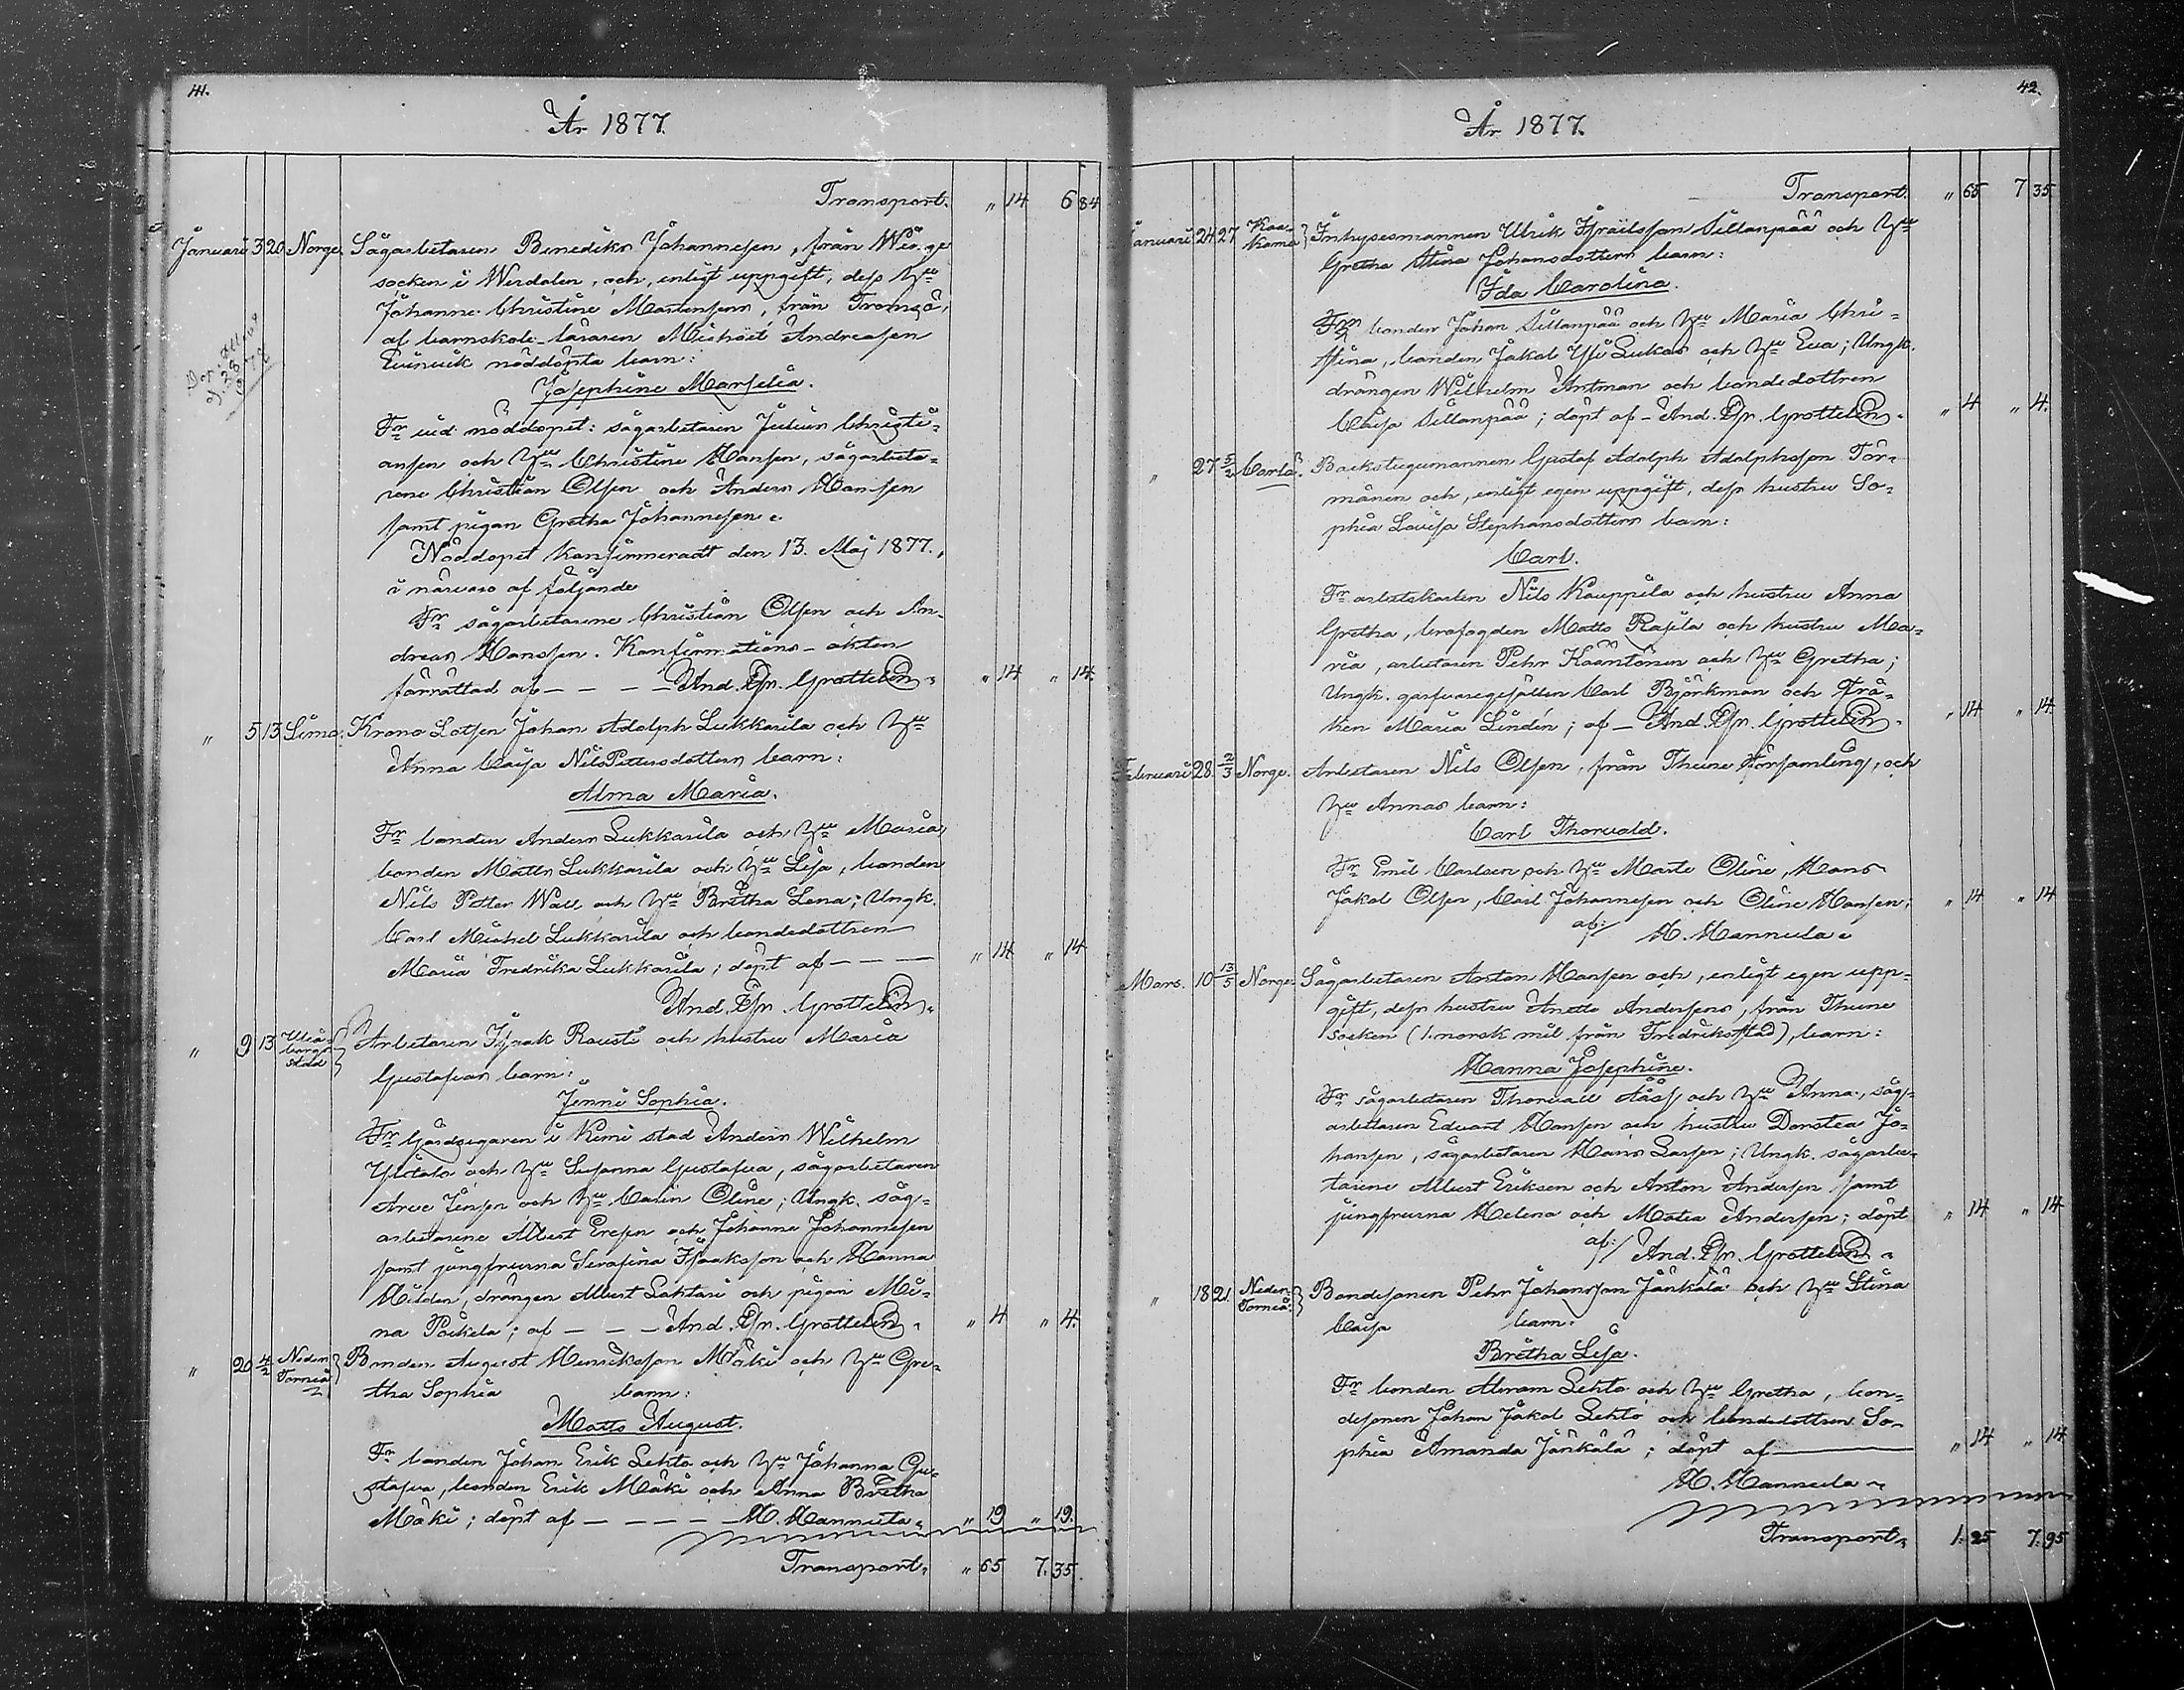 41.
År 1877.
Transport. " 14 6 84
Januari 3 20 Norge. Sågarbetaren Benedikt Johannesen, från
socken i Werdalen, och, enligt uppgift, dess Hu
Johanne Christine Martensens, från Tromsö,
af barnskole-läraren Michael Andreasen
nöddöpta barn:
Josephine Marselia.
Fr vid nöddopet: sågarbetaren Julius Christi-
ansen och Hu Christine Hansen, sågarbeta-
rene Christian Olsen och Anders Hansen
samt pigan Gretha Johannesen.
Nöddopet konfirmeradt den 13. Maj 1877.,
i närvaro af följande
Fr sågarbetarene Christian Olsen och An-
dreas Hanssen. Konfirmations-akten
förrättad af — — — And. Joh. Grottelin. " 14 " 14.
" 5 13 Simo. Krono Lotsen Johan Adolph Lukkarila och Hu
Anna Caisa Nils Pettersdotters barn:
Alma Maria.
Fr bonden Anders Lukkarila och Hu Maria,
bonden Matts Lukkarila och Hu Lisa, bonden
Nils Petter Wall och Hu Bretha Lena; Ungk.
Carl Michel Lukkarila och bondedottren
Maria Fredrika Lukkarila; döpt af — — — " 14 " 14
And. Joh. Grottelin.
" 9 13 Uleå-
borgs
stad Arbetaren Isaak Rousti och hustru Maria
Gustafvas barn:
Jenni Sophia.
Fr Gårdsegaren i Kemi stad Anders Wilhelm
Ylitalo och Hu Susanna Gustafva, sågarbetaren
Arve Jensen och Hu Carin Oline; Ungk. såg-
arbetarene Albert Eresen och Johanne Johannesen
samt jungfrurna Serafina Isaaksson och Hanna
Hilden, drängen Albert Lahtari och pigan Mi-
na Pöckela; af — — — And. Joh. Grottelin. " 4 " 4.
" 20 4/2 Neder
Torneå Bonden August Henriksson Mäki och Hu Gre-
tha Sophia barn:
Matts August.
Fr bonden Johan Erik Lehto och Hu Johanna Gu-
stafva, bonden Erik Mäki och Anna Bretha
Mäki; döpt af — — — — H. Mannula. " 19 " 19.
Transport. " 65 7. 35.
42.
År 1877.
Transport. " 65 7 35.
Januari 24 27 Kaa-
kamo Inhysesmannen Ulrik Israilsson Sillanpää och Hu
Gretha Stina Johansdotters barn:
Ida Carolina.
Fr bonden Johan Sillanpää och Hu Maria Chri-
stina, bonden Jakob Yli Lukas och Hu Eva; Ungk.
drängen Wilhelm Antman och bondedottren
Caisa Sillanpää; döpt af — And. Joh. Grottelin. " 4 " 4.
" 27 5/2 Carlö. Backstugumannen Gustaf Adolph Adolphsson Tör-
mänen och, enligt egen uppgift, dess hustru So-
phia Lovisa Stephansdotters barn:
Carl.
Fr arbetskarlen Nils Kauppila och hustru Anna
Gretha, brofogden Matts Rasila och hustru Ma-
ria, arbetaren Pehr Kaantonen och Hu Gretha;
Ungk. garfvaregesällen Carl Björkman och Frö-
ken Maria Lindén; af — And. Joh. Grottelin. " 14 " 14
Februari 28. 2/3 Norge. Arbetaren Nils Olsen, från Thune Församling, och
Hu Annas barn:
Carl Thorvald.
Fr Emil Carlsen och Hu Marte Oline, Hans
Jakob Olsen, Carl Johannesen och Oline Hansen, " 14 " 14
af: H. Mannula.
Mars. 10 13/5 Norge. Sågarbetaren Anton Hansen och, enligt egen upp-
gift, dess hustru Anette Andersens, från Thune
Socken (1. norsk mil från Fredrikstad), barn:
Hanna Josephine.
Fr sågarbetaren Thorvall Aass och Hu Anna, såg-
arbetaren Edvart Hansen och hustru Dorstea Jo-
hansen, sågarbetaren Hans Larsen; Ungk. sågarbe-
tarene Albert Eriksen och Anton Andersen samt
jungfrurna Helena och Matea Andersen; döpt " 14 " 14
af: And. Joh. Grottelin.
" 18 21. Neder-
Torneå. Bondesonen Pehr Johansson Jänkälä och Hu Stina
Caisa barn:
Bretha Lisa.
Fr bonden Abram Lehto och Hu Gretha, bon-
desonen Johan Jakob Lehto och bondedottren So-
phia Amanda Jänkälä; döpt af — " 14 " 14
H. Mannula
Transport. 1. 25 7. 95